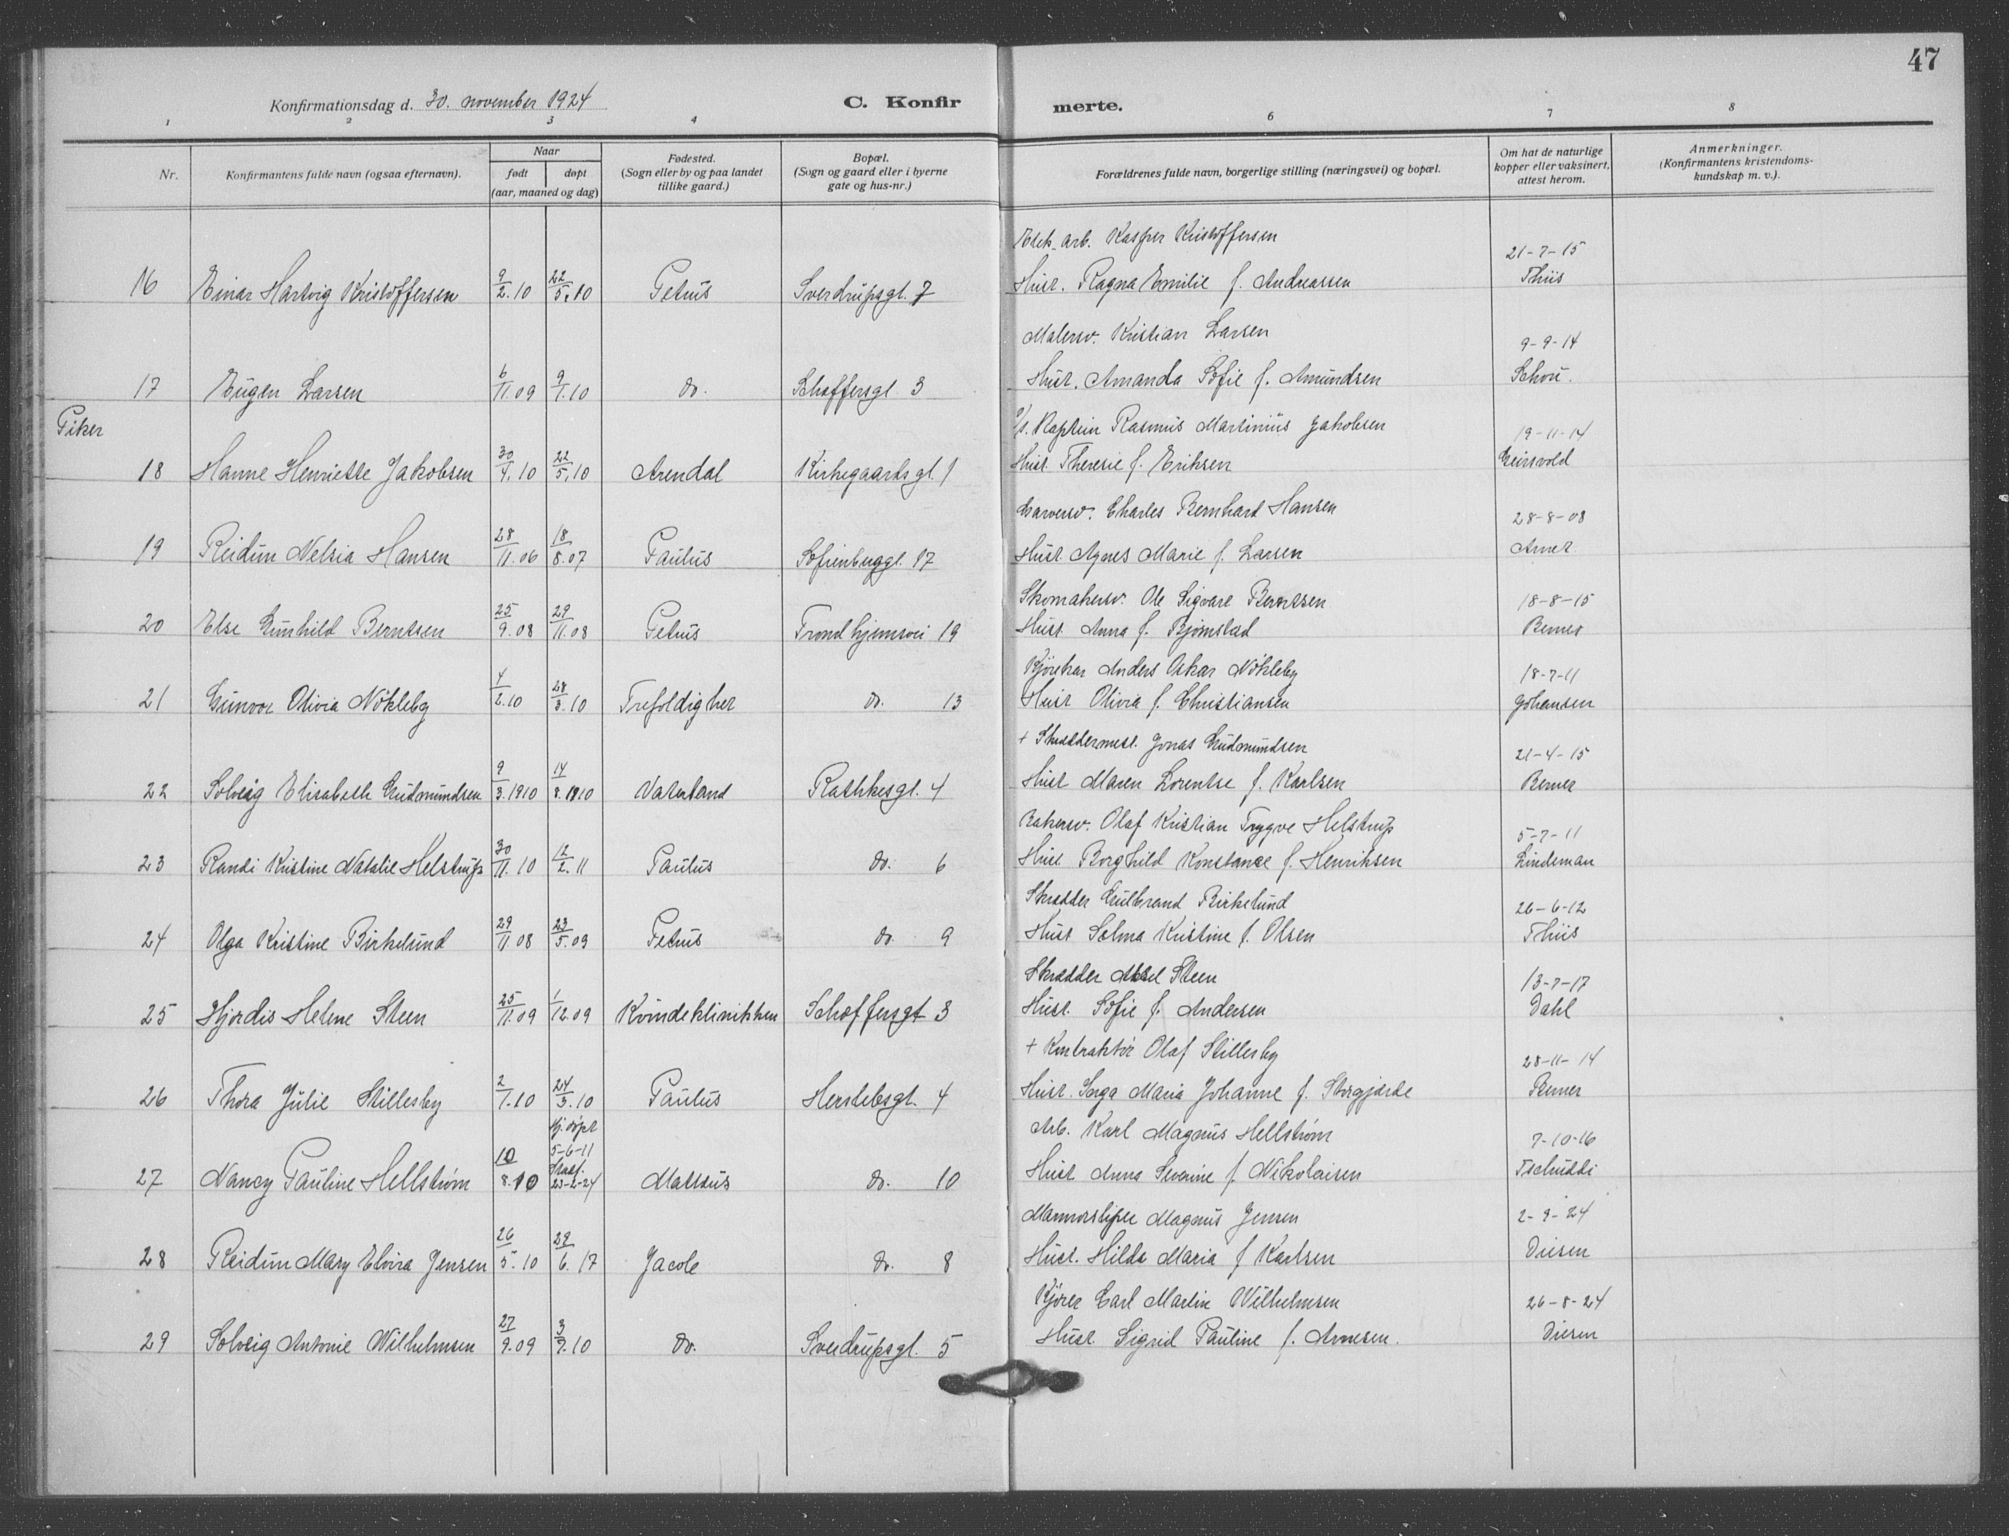 47
Konfirmationsdag d. 30. november 1924
C. Konfir merte.
1 2 3 4 6 7 8
Nr.
Konfirmantens fulde navn (ogsaa efternavn).
Naar
født døpt
(aar, maaned og dag)
Fødested.
(Sogn eller by og paa landet
tillike gaard.)
Bopæl.
(Sogn og gaard eller i byerne
gate og hus-nr.)
Forældrenes fulde navn, borgerlige stilling (næringsvei) og bopæl.
Om hat de naturlige
kopper eller vaksinert,
attest herom.
Anmerkninger.
(Konfirmantens kristendoms-
kundskap m. v.).
Elek. arb. Kasper Kristoffersen 21-7-15
16 Einar Hartvig Kristoffersen 9/2.10 22/5.10 Petrus Sverdrupsgt. 7 Hust. Ragna Emilie f. Andreassen Thiis
Malersv. Kristian Larsen 9-9-14
17 Eugen Larsen 6/11.09 9/1.10 do. Schoffersgt. 3 Hust. Amanda Sofie f. Amundsen Schou.
Piker
Kaptein Rasmus Martinius Jakobsen 19-11-14
18 Hanne Henriette Jakobsen 30/4.10 22/5.10 Arendal Kirkegaardsgt. 1 Hust. Theresie f. Eriksen
Garversv. Charles Bernhard Hansen 28-8-08
19 Reidun Nelsia Hansen 28/11.06 18/8.07 Paulus Sofienberggt. 17 Hust. Agnes Marie f. Larsen
Skomakersv. Ole Sigvart Berntsen 18-8-15
20 Else Gunhild Berntsen 25/9.08 29/11.08 Petrus Trondhjemsvei 19 Hust. Anna f. Bjørnstad Berner
Kjørekar Anders Oskar Nökleby 18-7-11
21 Gunvor Olivia Nökleby 4/2.10 28/3.10 Trefoldighet do. 13 Hust Olivia f. Christiansen Johansen
+ Skræddermest. Jonas Gudmundsen 21-4-15
22 Solveig Elisabeth Gudmundsen 9/3.1910 14/8.1910 Vaterland Rathkesgt. 4 Hust Maren Lorentse f. Karlsen Berner
Bakersv. Olaf Kristian Trygve Helstrup 5-7-11
23 Randi Kristine Natalie Helstrup 30/11.10 12/2.11 Paulus do. 6 Hust Borghild Konstance f. Henriksen Lindeman
Skrædder Gulbrand Birkelund 26-6-12
24 Olga Kristine Birkelund 29/11 08 23/5.09 Petrus do. 9 Hust Selma Kristine f. Olsen Thiis
Skrædder Aksel Steen 13-7-17
25 Hjørdis Helene Steen 25/11.09 1/12.09 Kvindeklinikken Schoffersgt 3 Hust. Sofie f. Andersen Dahl
+ Kontraktör Olaf Stillesby 28-11-14
26 Thora Julie Stillesby 2/1.10 24/3.10 Paulus Herslebsgt. 4 Hust. Inga Maria Johanne f. Storgjørde
Arb. Karl Magnus Hellstrøm 7-10-16
27 Nancy Pauline Hellstrøm 10/8.10 hj.döpt 5-6-11 Stadf. 23-2-24 Matteus do. 10 Hust Anna Severine f. Nikolaisen Tschuddi
Marmorsliper Magnus Jensen 2-9-24
28 Reidun Mary Elvira Jensen 26/5.10 29/6.17 Jacob do. 8 Hust. Hilda Maria f Karlsen Diesen
Kjører Carl Martin Wilhelmsen 26-8-24
29 Solveig Antonie Wilhelmsen 27/9.09 3/7.10 do. Sverdrupsgt. 5 Hust. Sigrid Pauline f. Arnesen. Diesen